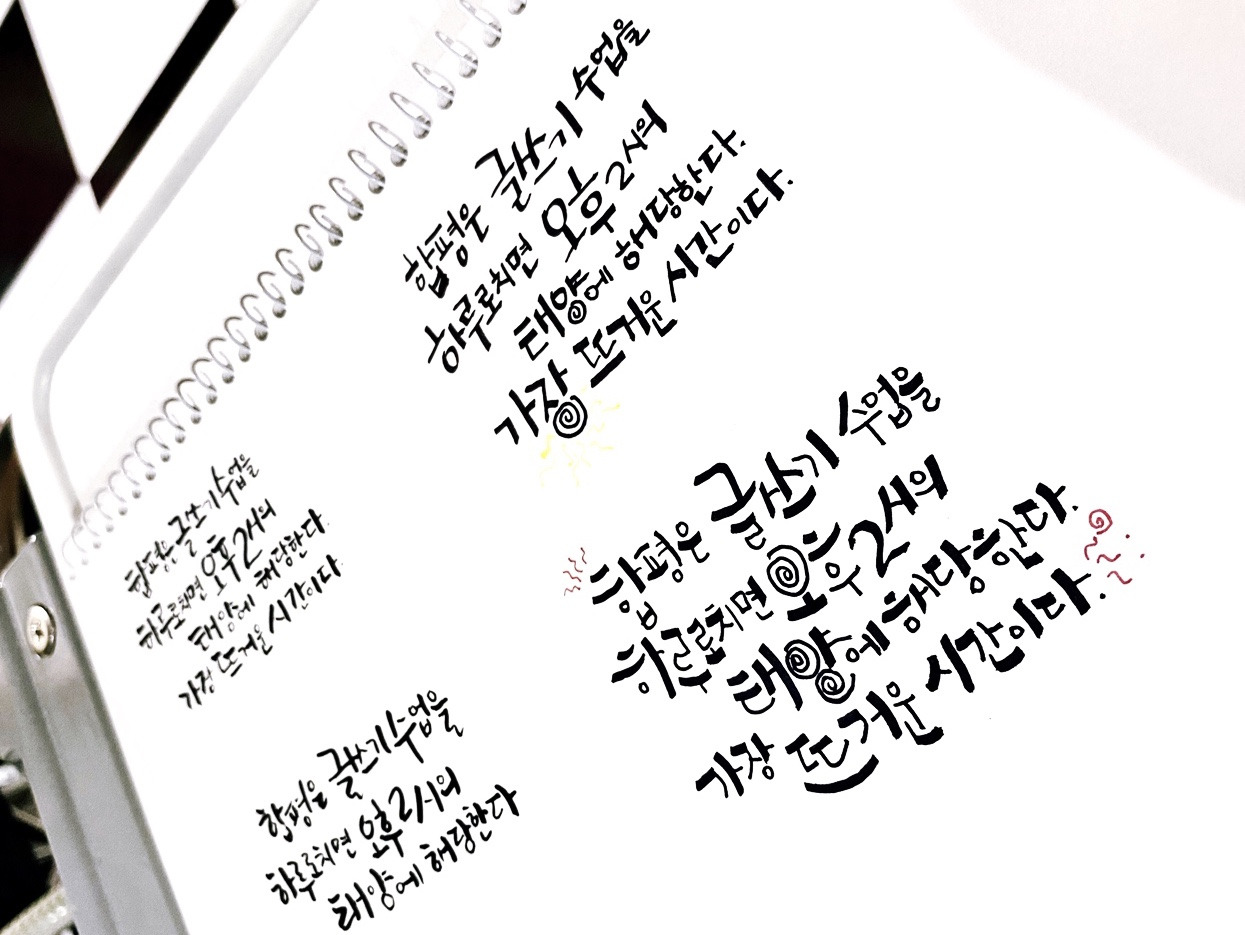 합평은 글쓰기 수업을
하루로치면 오후 2시의
태양에 해당한다.
가장 뜨거운 시간이다.
합평은 글쓰기 수업을
하루로치면 오후 2시의
태양에 해당한다.
가장 뜨거운 시간이다.
합평은 글쓰기 수업을
하루로치면 오후 2시의
태양에 해당한다.
가장 뜨거운 시간이다.
합평은 글쓰기 수업을
하루로치면 오후 2시의
태양에 해당한다